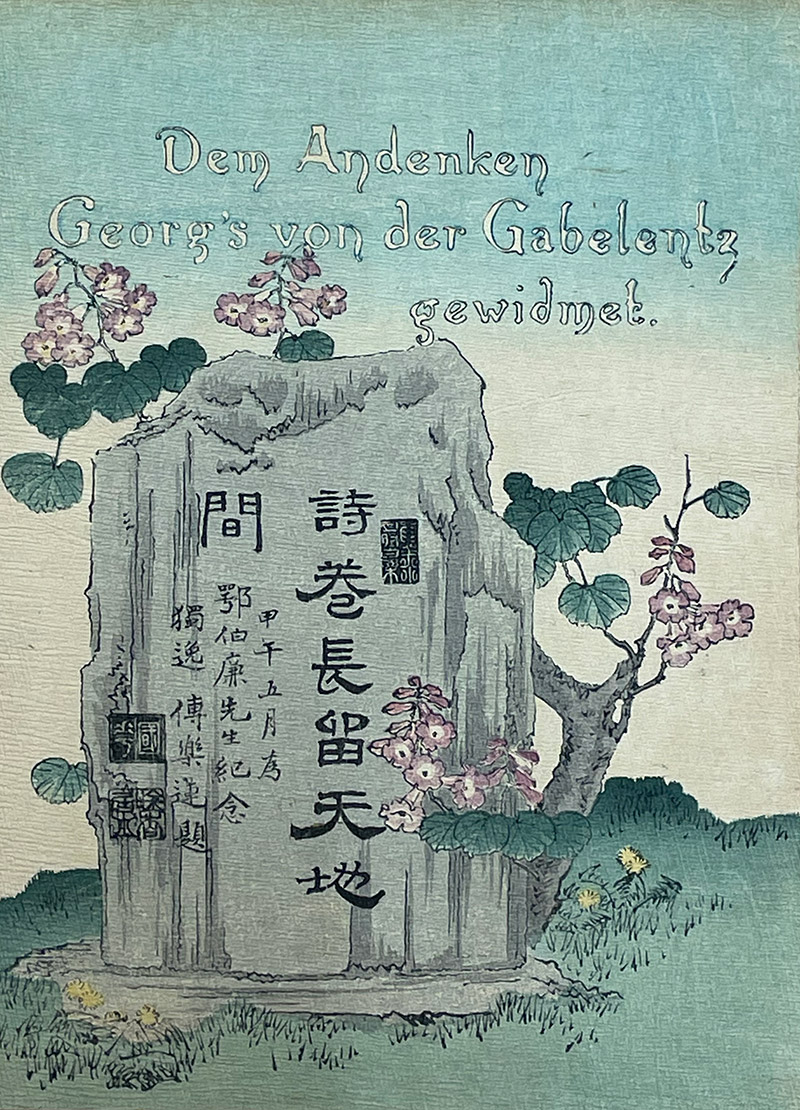 Dem Andenken
Georg's von der Gabelentz
gewidmet.
詩卷長留天地
間
甲午五月為
鄂伯廉先生紀念
獨逸 傅樂連題